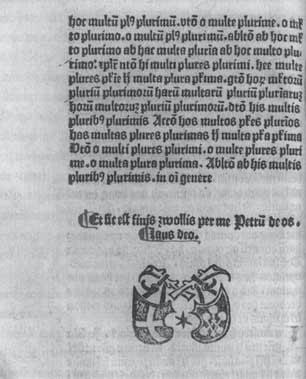 hoc multū plꝰ plurimū. vtō o multe plurime. o mlto plurimo. o multū plꝰ plurimū. abltō ab hoc mlto plurimo ab hac multa plurīa ab hoc multo plurimo: Et plr ntō hi multi plures plurimi. hee multe
plures pl'ie hec multa plura pl'ima. gtō hoꝝ ml'toꝝū
plurīū plurimoꝝū harū multarū plurīū plurīarꝫ
hoꝝū multoꝝꝫ plurīū plurimoꝝū. dtō his multis
pluribꝰ plurimis Actō hos multos pl'es plurīos
has multas plures plurimas hec multa pl'a pl'ima
Vtō o multi plures plurimi. o multe plures plurime. o multa plura plurima. Abltō ab his multis
pluribꝰ plurimis. in oī genere
Et sic est finis zwollis per me Petrū de os.
Laus deo.